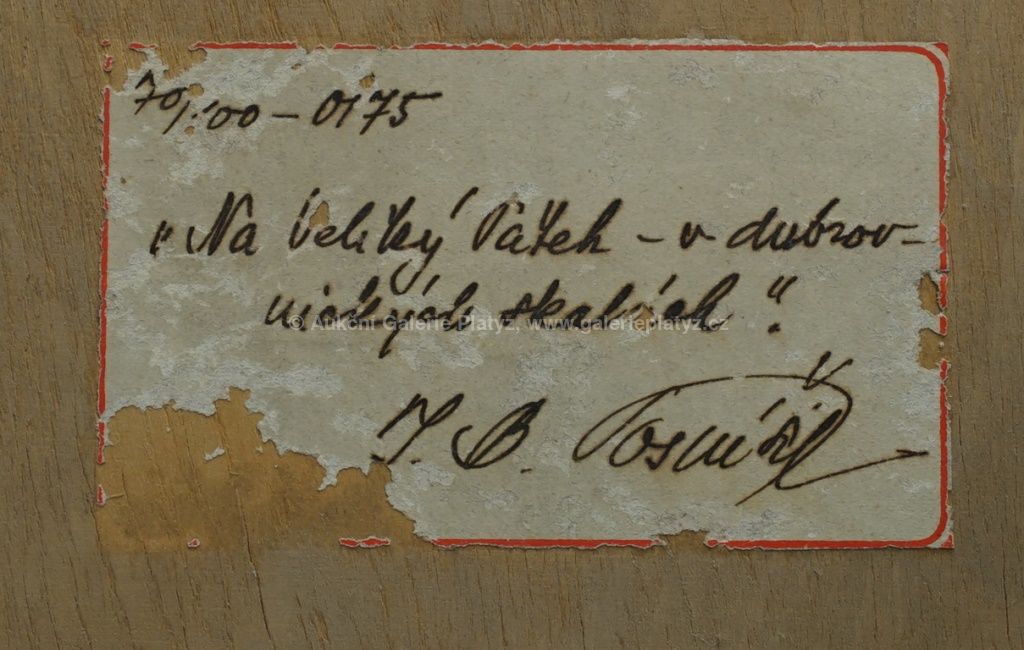 70/100 – 0175
„Na Veliký Pátek – v dubrov–
nických skalách“.
© Aukční Galerie Platýz, www.galerieplatyz.cz
J. B.